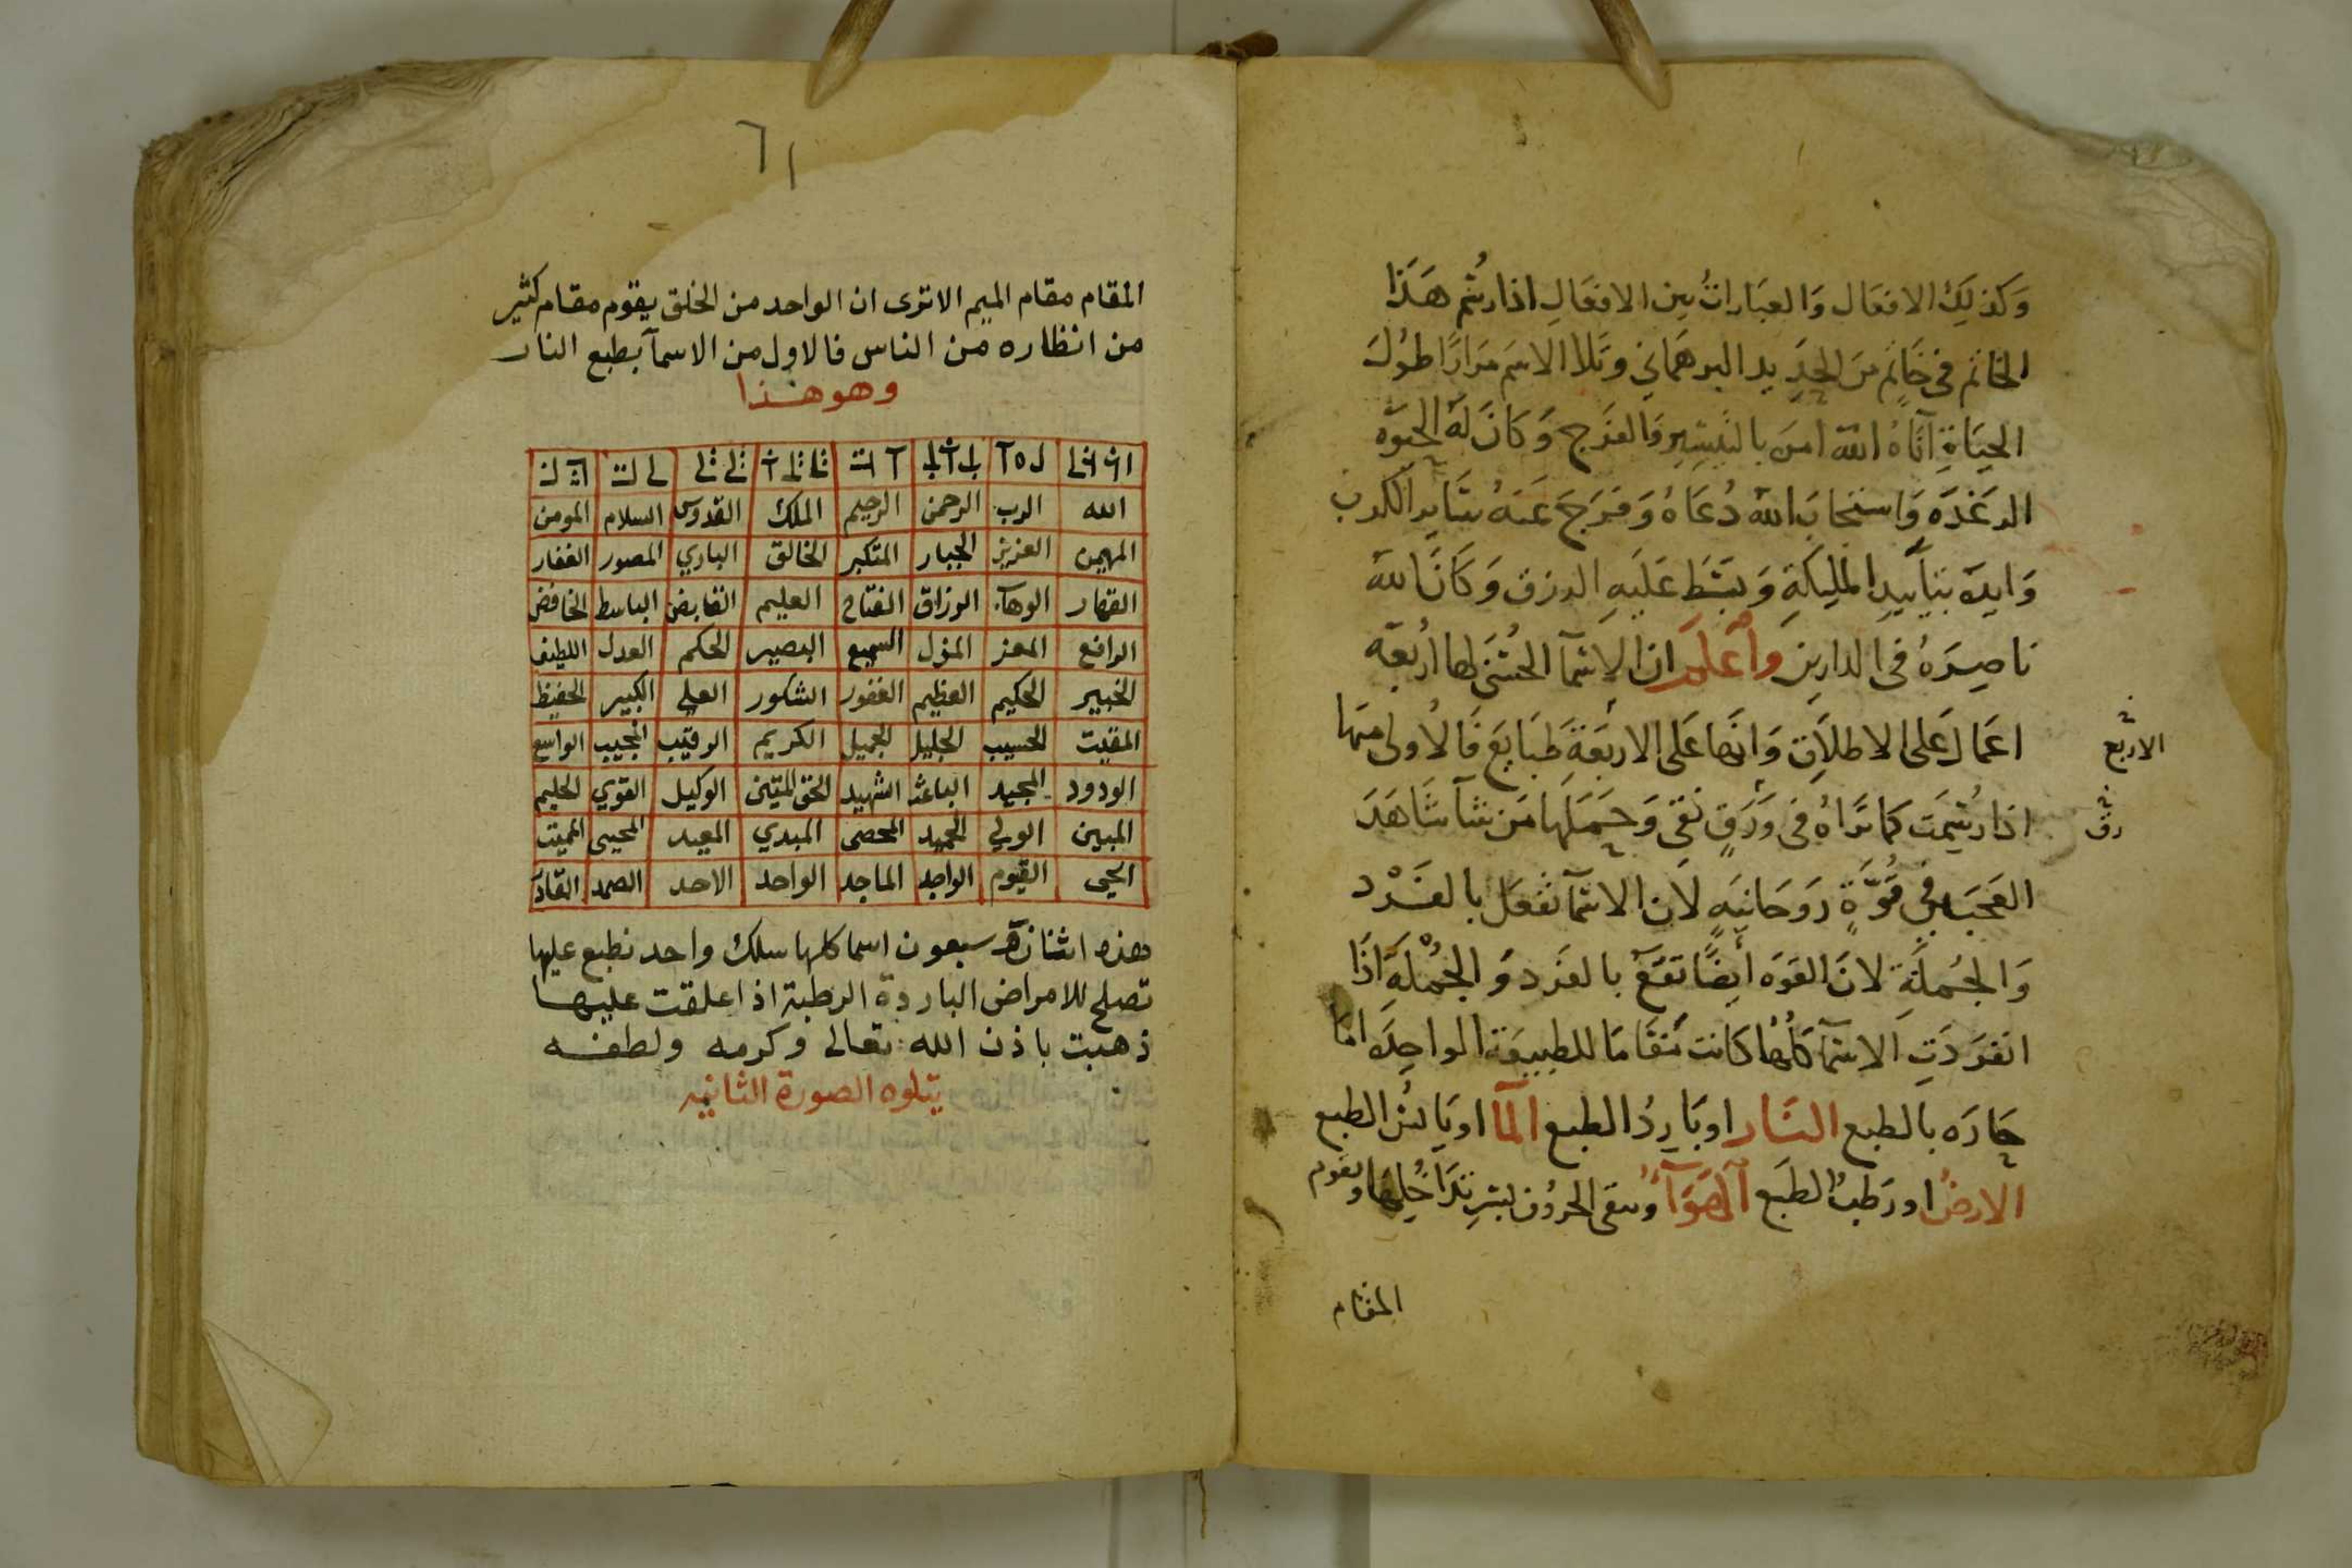 وَكَذلِكَ الافعَال وَالعبَاراتُ بين الافعَالِ اذا رسُم هَذَا
الخاتم في خَاتم مِنَ الحَدِيد البرهَماني وتَلا الاسَم مَرارًا طوُلَ
الحيَاةِ اتَاهُ الله امنَ بالتيسِير وَالفرَج وَكانَ لهَ الحَيوه
الرغدَه وَاستجابَ الله دُعَاهُ وَفرَجَ عَنهُ الكرب
وَايدَه بتأييدِ المليكَةِ وَبسَط عَليَهِ الرزق وَكانَ لله
ناصِرَهُ في الدارين وَاعلَم ان الاسمآ الحسُنَى لها اربَعَه
اعمَال عَلى الاطلَاق وَانها عَلى الاربَعَة طبَايعَ فَالاولى منهَا
الاربع
اذا رسُمِت كما تَراهُ في وَرَقٍ نَقي وَحمَلهَا مَن شآ شَاهَدَ
رق
العَجَب في قُوَّةٍ رَوحَانيَه لان الاسَمآ تفعَل بالفَرْد
وَالجُملَةِ لانَ القوَه أيضًا تقَع بالفرَد وَ الجُمْلَهِ اذَا
انفرَدَتِ الاسمآ كلُهُا كانت مَقَامَا للطبِيعَة الواحِدَه امَا
حَارَه بالطبع النَار او بَارِدُ الطبع المآ او يَابسُ الطبع
الارضُ او رَطبُ الطَبع الهَوَآ وَتبقى الحروُف لسِر تدَاخُلِهَا وتقوم
المقام
٦١
المقام مقام الميم الاترى ان الواحد من الخلق يقوم مقام كثير
من انظاره من الناس فالاول من الاسمآ بطبع النار
وهو هذا
الله الرب الرحمن الرحيم الملك القدوس السلام المومن
المهيمن العزيز الجبار المتكبر الخالق الباري المصور الغفار
القهار الوهاب الرزاق الفتاح العليم القابض الباسط الخافض
الرافع المعز المذل السميع البصير الحكم العدل اللطيف
الخبير الحكيم العظيم الغفور الشكور العلي الكبير الحفيظ
المقيت الحسيب الجليل الجميل الكريم الرقيب المجيب الواسع
الودود المجيد الباعث الشهيد الحق المتين الوكيل القوي الحليم
المبين الولي الحميد المحصى المبدي المعيد المحيى المميت
الحى القيوم الواجد الماجد الواحد الاحد الصمد القادر
وهذه اثنان سبعون اسما كلها سلك واحد نطبع عليها
تصلح للامراض الباردة الرطبة اذا علقت عليها
ذهبت باذن الله تعالى وكرمه ولطفه
يتلوه الصورة الثانيه